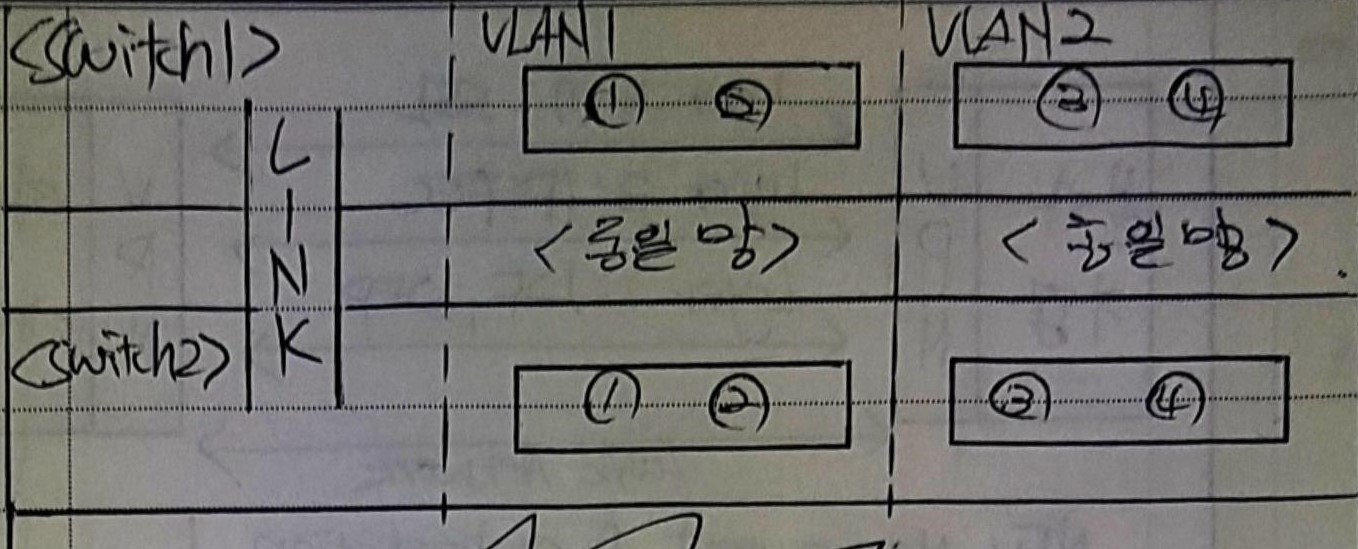 <Switch1>
VLAN1
VLAN2
① ②
③ ④
LINK
<동일망>
<동일망>
<Switch2>
① ②
③ ④